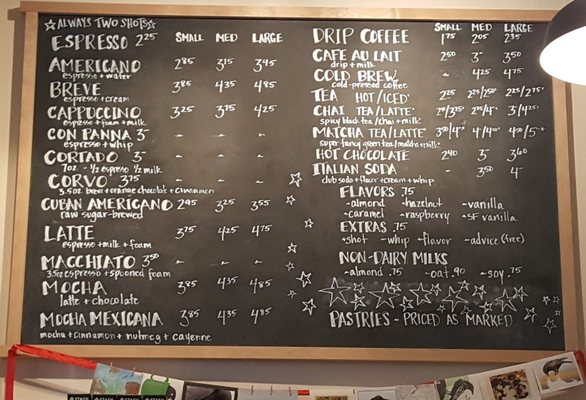 ☆ALWAYS TWO SHOTS☆
ESPRESSO 2.25 SMALL MED LARGE
AMERICANO 2.85 3.15 3.45
espresso + water
BREVE 3.85 4.35 4.85
espresso + cream
CAPPUCCINO 3.25 3.75 4.25
espresso + foam + milk
CON PANNA 3- ~ ~ ~
espresso + whip
CORTADO 3- ~ ~ ~
7oz. - 1/2 espresso 1/2 milk
CORVO 3.75 ~ ~ ~
3.5oz brew + orange chocolate + cinnamon
CUBAN AMERICANO 2.95 3.25 3.55
raw sugar-brewed
LATTE 3.75 4.25 4.75
espresso + milk + foam
MACCHIATO 3.50 ~ ~ ~
3.5oz espresso + spooned foam
MOCHA 3.85 4.35 4.85
latte + chocolate
MOCHA MEXICANA 3.85 4.35 4.85
mocha + cinnamon + nutmeg + cayenne
SMALL MED LARGE
DRIP COFFEE 1.75 2.05 2.35
CAFE AU LAIT 2.50 3- 3.50
drip + milk
COLD BREW ~ 4.25 4.75
cold-pressed coffee
TEA HOT/ICED* 2.25 2.25/2.50* 2.25/2.75*
CHAI TEA/LATTE* 2.50/3.25* 2.75/4* 3/4.25*
spicy black tea/chai + milk*
MATCHA TEA/LATTE* 3.50/4* 4/4.50* 4.50/5-*
super fancy green tea/matcha + milk*
HOT CHOCOLATE 2.40 3- 3.60
ITALIAN SODA ~ 3.50 4-
club soda + flavor + cream + whip
FLAVORS .75
~almond ~hazelnut ~vanilla
~caramel ~raspberry ~SF vanilla
EXTRAS .75
~shot ~whip ~flavor ~advice (free)
NON-DAIRY MILKS
~almond .75 ~oat .90 ~soy .75
PASTRIES ~ PRICED AS MARKED